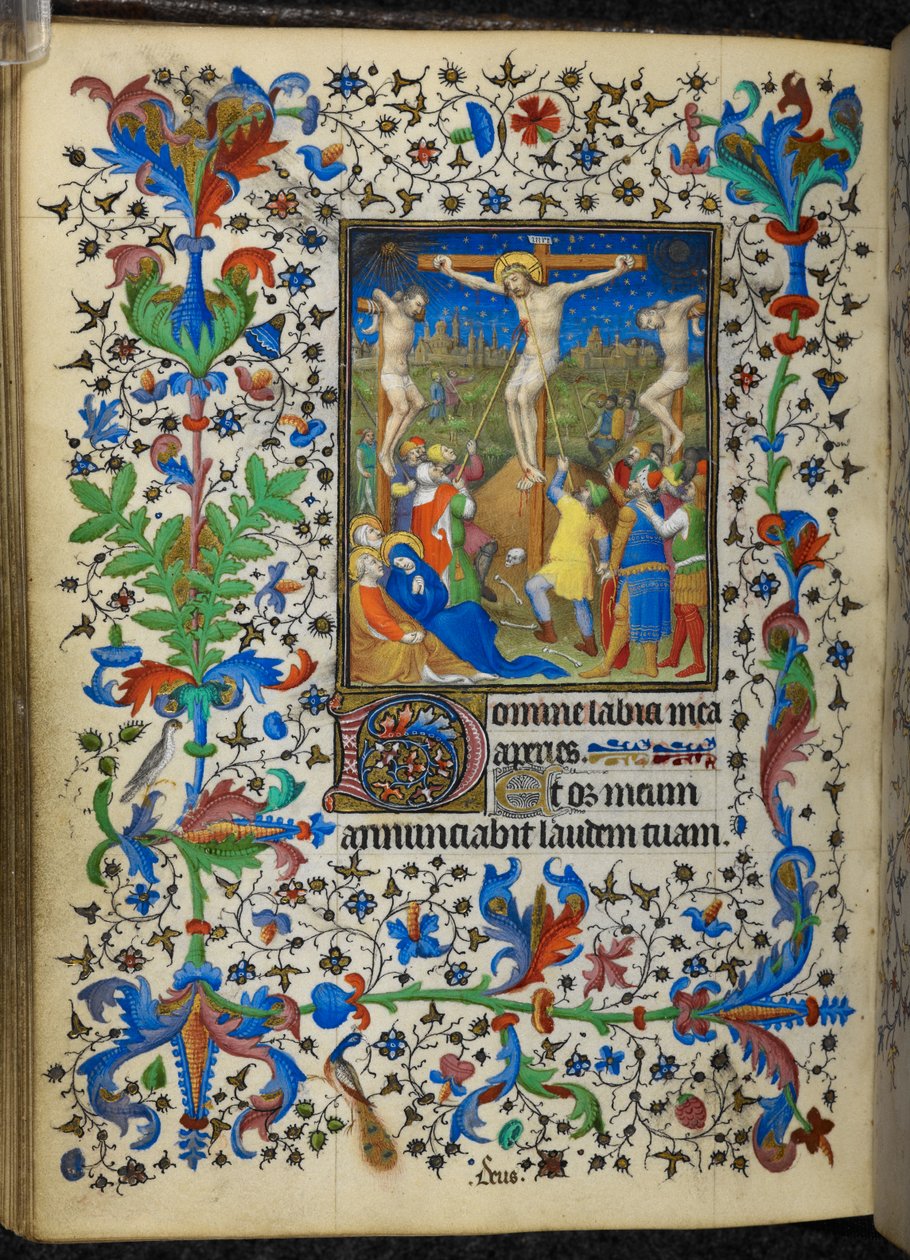 inri
Domine labia mea
aperies.
Et os meum
annunciabit laudem tuam.
.Deus.